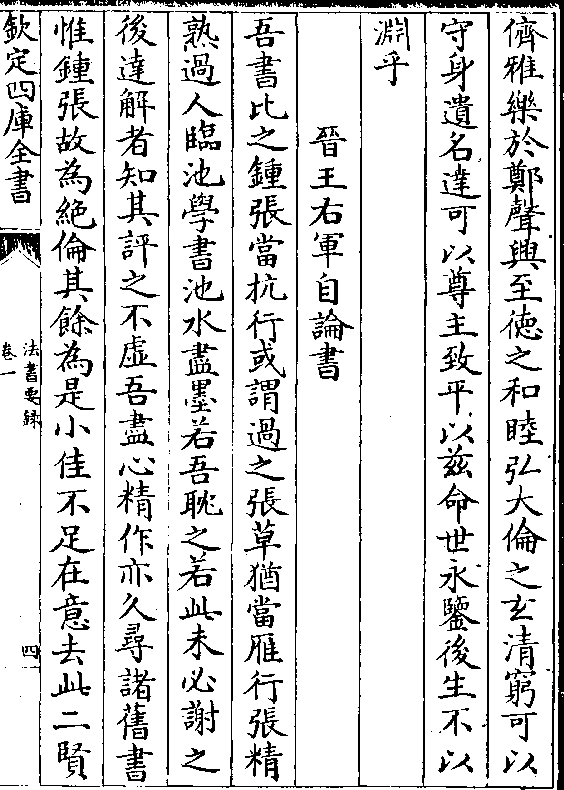 儕雅樂於鄭聲興至徳之和睦弘大倫之玄清窮可以
守身遺名達可以尊主致平以兹命世永鑒後生不以
淵乎
晉王右軍自論書
吾書比之鍾張當抗行或謂過之張草猶當雁行張精
熟過人臨池學書池水盡墨若吾耽之若此未必謝之
後達解者知其評之不虚吾盡心精作亦久尋諸舊書
惟鍾張故為絶倫其餘為是小佳不足在意去此二賢
欽定四庫全書
法書要録
卷一
四